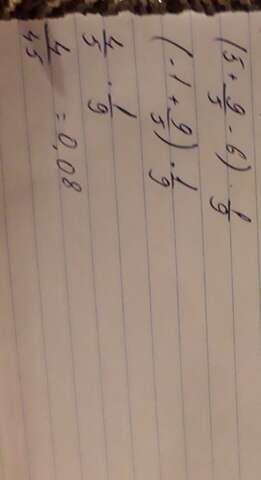 (5 + 9/5 - 6) · 1/9
(-1 + 9/5) · 1/9
4/5 · 1/9
4/45 = 0,08